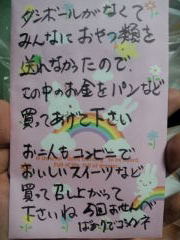 ダンボールがなくて
みんなにおやつ類を
送れなかったので、
この中のお金をパンなど
買ってあげて下さい
お二人もコンビニで
おいしいスイーツなど
買って召し上がって
下さいね 今回おせんべ
ばかりでゴメンネ